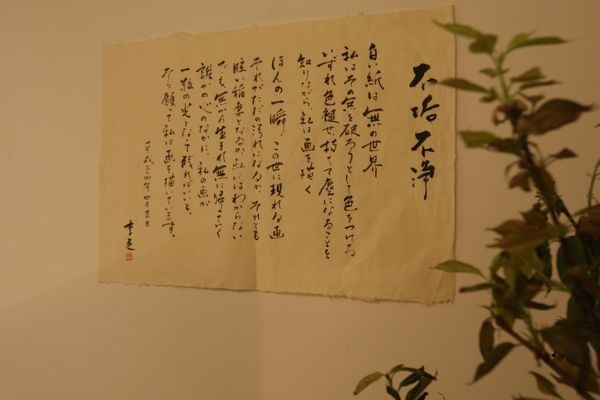 不垢不浄
白い紙は無の世界
私はその無を破ろうとして色をつける
いずれ色褪せ朽ちて塵になることを
知りながら、私は画を描く
ほんの一瞬、この世に現れる画
それがただの汚れになるか、それとも
眩い稲妻となるか、私にはわからない
でも、無から生まれ無に帰っていく
誰かの心のなかに、私の画が
一粒の光となって残ればいいと、
そう願って私は画を描いています。
平成二十四年四月吉日